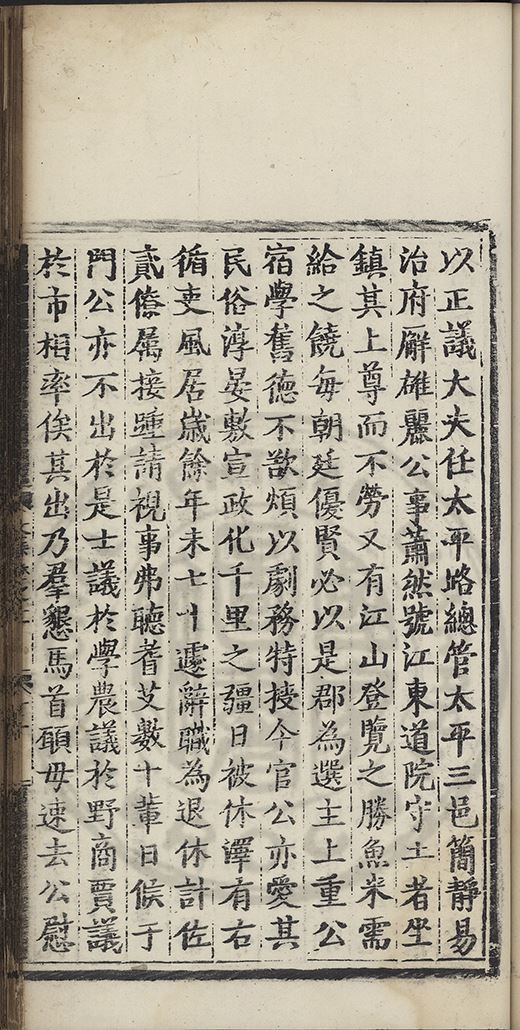 以正議大夫任太平路總管太平三邑簡靜易
治府廨雄麗公事蕭然號江東道院守土者坐
鎮其上尊而不勞又有江山登覽之勝魚米需
給之饒每朝廷優賢必以是郡為選主上重公
宿學舊德不欲煩以劇務特授今官公亦愛其
民俗淳晏敷宣政化千里之疆日被休澤有右
循吏風居歲餘年未七十遽辭職為退休計佐
貳僚属接踵請視事弗聽耆艾數十輩日候于
門公亦不出於是士議於學農議於野商賈議
於市相率俟其出乃羣懇馬首願毋速去公慰